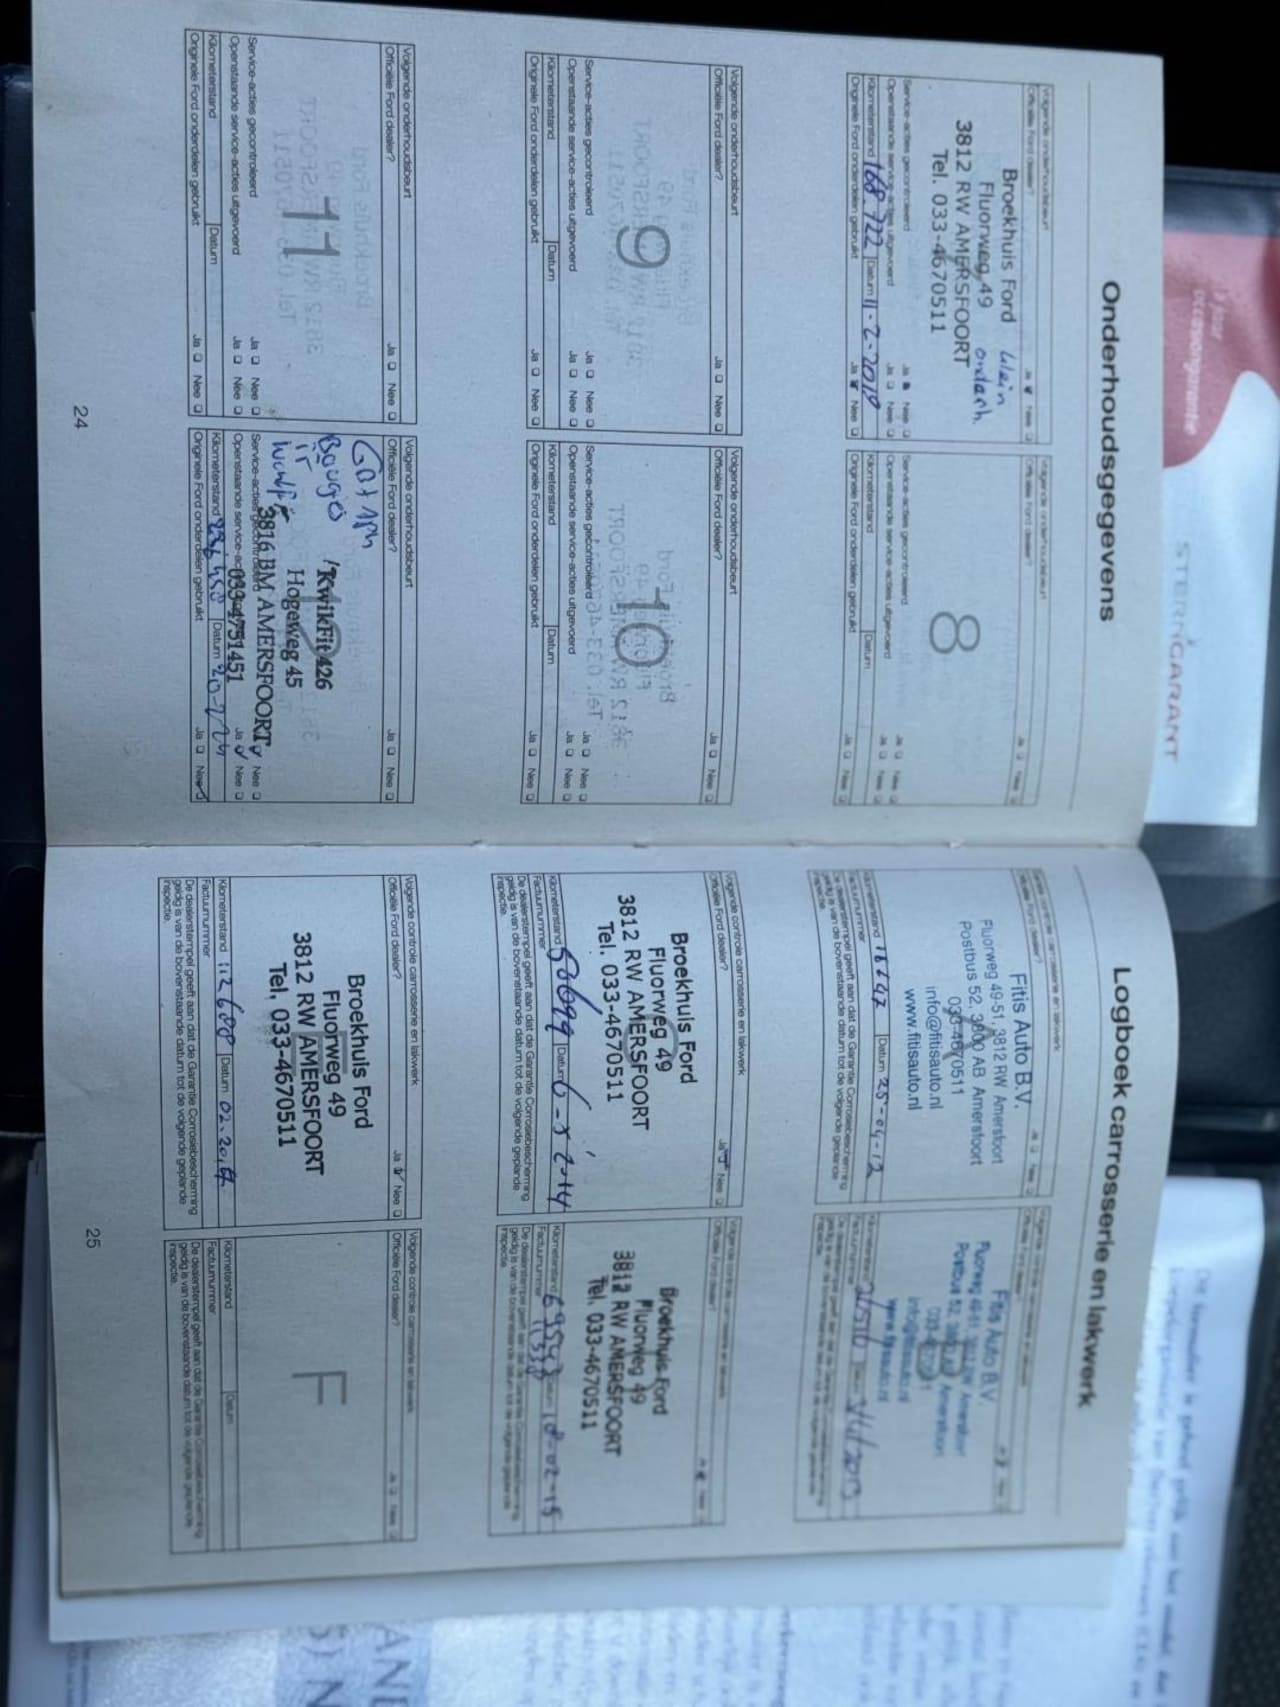 Onderhoudsgegevens
Volgende onderhoudsbeurt
Officiële Ford dealer? Ja Nee
Broekhuis Ford klein
Fluorweg 49 onderh.
3812 RW AMERSFOORT
Tel. 033-4670511
Service-acties gecontroleerd Ja Nee
Openstaande service-acties uitgevoerd Ja Nee
Kilometerstand 168.722 Datum 11-2-2019
Originele Ford onderdelen gebruikt Ja Nee
Volgende onderhoudsbeurt
Officiële Ford dealer? Ja Nee
8
Service-acties gecontroleerd Ja Nee
Openstaande service-acties uitgevoerd Ja Nee
Kilometerstand Datum
Originele Ford onderdelen gebruikt Ja Nee
Volgende onderhoudsbeurt
Officiële Ford dealer? Ja Nee
9
Service-acties gecontroleerd Ja Nee
Openstaande service-acties uitgevoerd Ja Nee
Kilometerstand Datum
Originele Ford onderdelen gebruikt Ja Nee
Volgende onderhoudsbeurt
Officiële Ford dealer? Ja Nee
10
Service-acties gecontroleerd Ja Nee
Openstaande service-acties uitgevoerd Ja Nee
Kilometerstand Datum
Originele Ford onderdelen gebruikt Ja Nee
Volgende onderhoudsbeurt
Officiële Ford dealer? Ja Nee
11
Service-acties gecontroleerd Ja Nee
Openstaande service-acties uitgevoerd Ja Nee
Kilometerstand Datum
Originele Ford onderdelen gebruikt Ja Nee
Volgende onderhoudsbeurt
Officiële Ford dealer? Ja Nee
Bougo
KwikFit 426
Hogeweg 45
3816 BM AMERSFOORT
033-4751451
Service-acties gecontroleerd Ja Nee
Openstaande service-acties Ja Nee
Kilometerstand Datum
Originele Ford onderdelen gebruikt Ja Nee
24
Logboek carrosserie en lakwerk
Volgende controle carrosserie en lakwerk
Officiële Ford dealer? Ja Nee
Fitis Auto B.V.
Fluorweg 49-51, 3812 RW Amersfoort
Postbus 52, 3800 AB Amersfoort
033-4670511
info@fitisauto.nl
www.fitisauto.nl
Kilometerstand Datum 25-04-12
Factuurnummer
De dealerstempel geeft aan dat de Garantie Corrosiebescherming
geldig is van de bovenstaande datum tot de volgende geplande
inspectie.
Volgende controle carrosserie en lakwerk
Officiële Ford dealer? Ja Nee
Fitis Auto B.V.
Fluorweg 49-51, 3812 RW Amersfoort
Postbus 52, 3800 AB Amersfoort
033-4670511
info@fitisauto.nl
www.fitisauto.nl
Kilometerstand
Factuurnummer
De dealerstempel geeft aan dat de Garantie Corrosiebescherming
geldig is van de bovenstaande datum tot de volgende geplande
inspectie.
Volgende controle carrosserie en lakwerk
Officiële Ford dealer? Ja Nee
Broekhuis Ford
Fluorweg 49
3812 RW AMERSFOORT
Tel. 033-4670511
Kilometerstand 50699 Datum
Factuurnummer
De dealerstempel geeft aan dat de Garantie Corrosiebescherming
geldig is van de bovenstaande datum tot de volgende geplande
inspectie.
Volgende controle carrosserie en lakwerk
Officiële Ford dealer?
Broekhuis Ford
Fluorweg 49
3812 RW AMERSFOORT
Tel. 033-4670511
Kilometerstand 10-02-15
Factuurnummer
De dealerstempel geeft aan dat de Garantie Corrosiebescherming
geldig is van de bovenstaande datum tot de volgende geplande
inspectie.
Volgende controle carrosserie en lakwerk
Officiële Ford dealer? Ja Nee
Broekhuis Ford
Fluorweg 49
3812 RW AMERSFOORT
Tel. 033-4670511
Kilometerstand 112608 Datum
Factuurnummer
De dealerstempel geeft aan dat de Garantie Corrosiebescherming
geldig is van de bovenstaande datum tot de volgende geplande
inspectie.
Volgende controle carrosserie en lakwerk
Officiële Ford dealer? Ja Nee
F
Kilometerstand Datum
Factuurnummer
De dealerstempel geeft aan dat de Garantie Corrosiebescherming
geldig is van de bovenstaande datum tot de volgende geplande
inspectie.
25
jaar
occasiongarantie
STERNGARANT